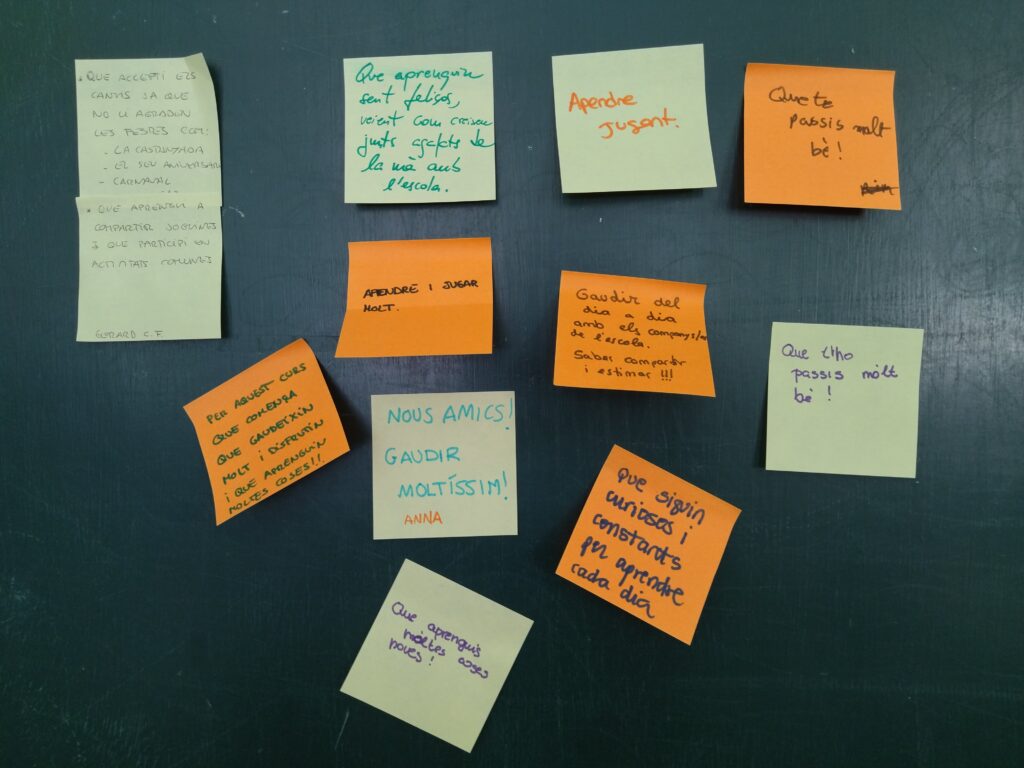 • QUE ACCEPTI ELS
CANVIS JA QUE
NO LI AGRADEN
LES FESTES COM:
- LA CASTANYADA
- EL SEU ANIVERSARI
- CARNAVAL
* QUE APRENGUI A
COMPARTIR JOGUINES
I QUE PARTICIPI EN
ACTIVITATS COMUNES
GERARD C.F
Que aprenguin
sent feliços,
veient com creixen
junts agafats de
la mà amb
l'escola.
Apendre
jugant.
Que te
passis mólt
bè!
APENDRE I JUGAR
MOLT.
Gaudir del
dia a dia
amb els companys/es
de l'escola.
Saber compartir
i estimar !!!
Que t'ho
passis mólt
bé !
PER AQUEST CURS
QUE COMENÇA
QUE GAUDEIXIN
MOLT I DISFRUTIN
I QUE APRENGUIN
MOLTES COSES!!
NOUS AMICS!
GAUDIR
MOLTÍSSIM!
ANNA
Que siguin
curioses i
constants
per aprendre
cada dia
Que aprenguis
móltes coses
noves !